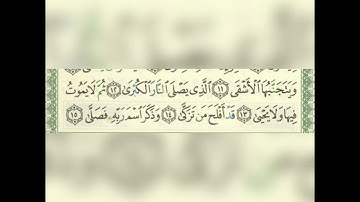 وَيَتَجَنَّبُهَا ٱلْأَشْقَى ١١ ٱلَّذِى يَصْلَى ٱلنَّارَ ٱلْكُبْرَىٰ ١٢ ثُمَّ لَا يَمُوتُ
فِيهَا وَلَا يَحْيَىٰ ١٣ قَدْ أَفْلَحَ مَن تَزَكَّىٰ ١٤ وَذَكَرَ ٱسْمَ رَبِّهِۦ فَصَلَّىٰ ١٥